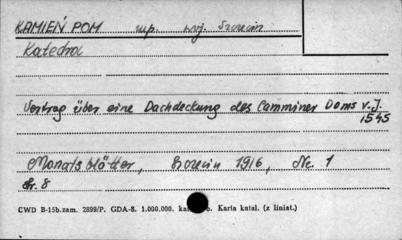 KAMIEŃ POM mp. woj. Szczecin
Katedra
Vertrag über eine Dachdeckung des Camminer Doms v. J.
1545
Monatsblätter, Szczecin 1916, Nr. 1
str. 8
CWD B-15b. zam. 2899/P. GDA-8. 1.000.000. Karta katal. (z liniat.)